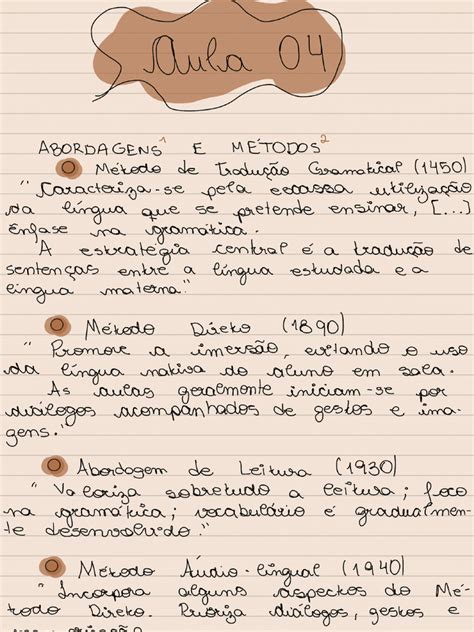 Aula 04
ABORDAGENS¹ E MÉTODOS²
Método de Tradução Gramatical (1450)
"Caracteriza-se pela escassa utilização
da língua que se pretende ensinar, [...]
Ênfase na gramática.
A estratégia central é a tradução de
sentenças entre a língua estudada e a
língua materna."
Método Direto (1890)
"Promove a imersão, evitando o uso
da língua nativa do aluno em sala.
As aulas geralmente iniciam-se por
diálogos acompanhados de gestos e ima-
gens."
Abordagem de Leitura (1930)
"Valoriza sobretudo a leitura; foco
na gramática; vocabulário é gradualmen-
te desenvolvido."
Método Áudio-lingual (1940)
"Incorpora alguns aspectos do Mé-
todo Direto. Prioriza diálogos, gestos e